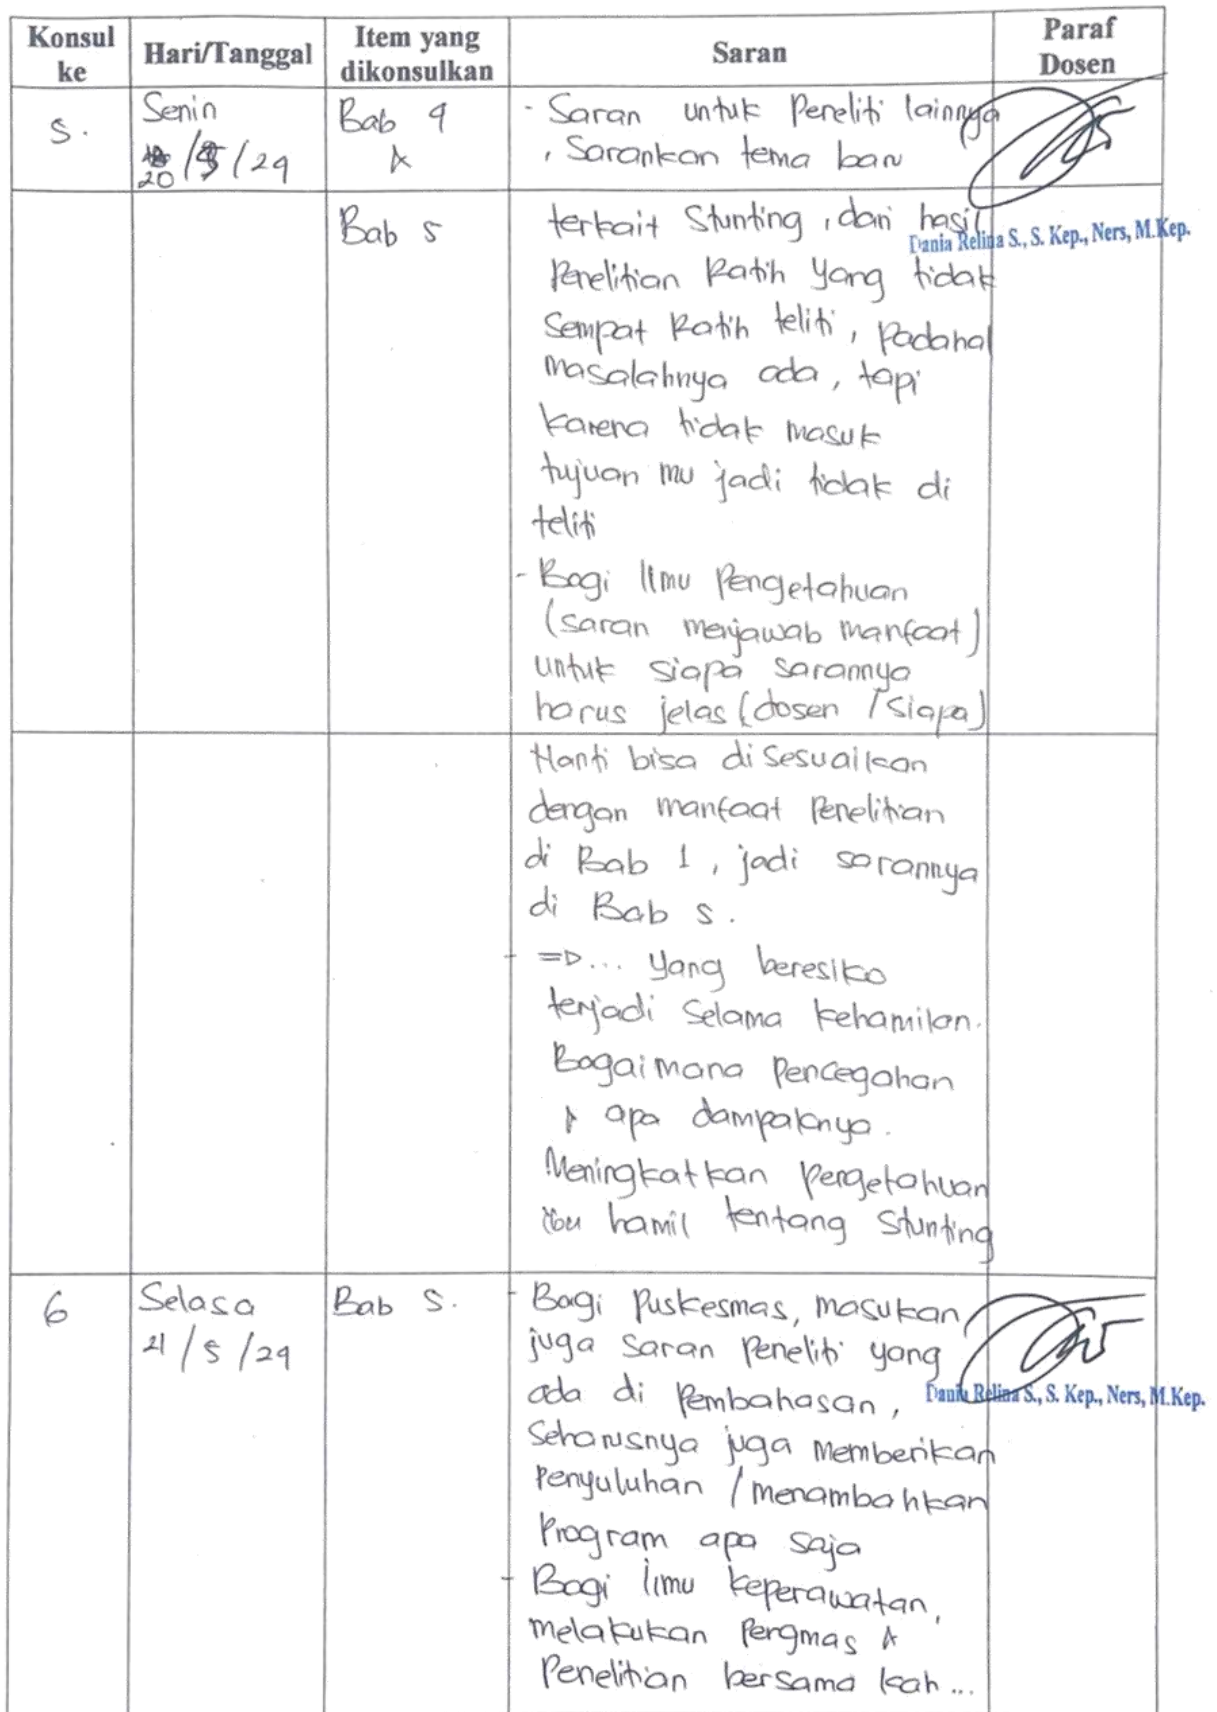 Konsul ke Hari/Tanggal Item yang dikonsulkan Saran Paraf Dosen
5. Senin Bab 4 - Saran untuk Peneliti lainnya
20/5/24 & , Sarankan tema baru
Bab 5 terkait Stunting, dari hasil
Dania Relina S., S. Kep., Ners, M.Kep.
Penelitian Ratih yang tidak
sempat Ratih teliti, padahal
masalahnya ada, tapi
karena tidak masuk
tujuan mu jadi tidak di
teliti
- Bagi Ilmu Pengetahuan
(saran menjawab manfaat)
untuk siapa sarannya
harus jelas (dosen / siapa)
Nanti bisa di sesuaikan
dengan manfaat Penelitian
di Bab 1, jadi sarannya
di Bab 5.
- => ... yang beresiko
terjadi Selama kehamilan.
Bagaimana Pencegahan
& apa dampaknya.
Meningkatkan Pengetahuan
ibu hamil tentang Stunting
6 Selasa Bab 5. - Bagi Puskesmas, masukan
21/5/24 juga saran Peneliti yang
ada di Pembahasan,
Dania Relina S., S. Kep., Ners, M.Kep.
Seharusnya juga memberikan
Penyuluhan / menambahkan
Program apa saja
- Bagi ilmu keperawatan,
melakukan Pengmas &
Penelitian bersama kah...